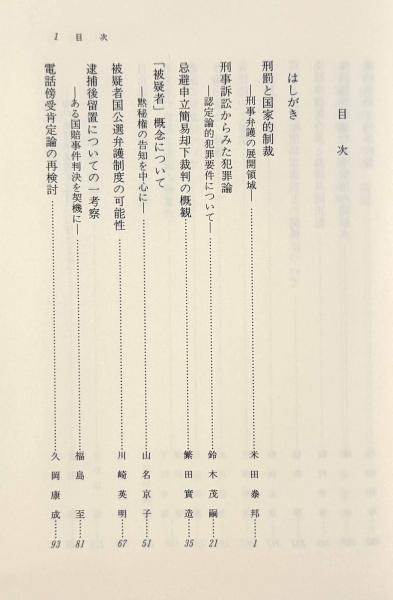 1 目 次
目 次
はしがき
刑罰と国家的制裁
―刑事弁護の展開領域―……米田泰邦…1
刑事訴訟からみた犯罪論
―認定論的犯罪要件について―……鈴木茂嗣…21
忌避申立簡易却下裁判の概観……繁田實造…35
「被疑者」概念について
―黙秘権の告知を中心に―……山名京子…51
被疑者国公選弁護制度の可能性……川崎英明…67
逮捕後留置についての一考察
―ある国賠事件判決を契機に―……福島 至…81
電話傍受肯定論の再検討……久岡康成…93